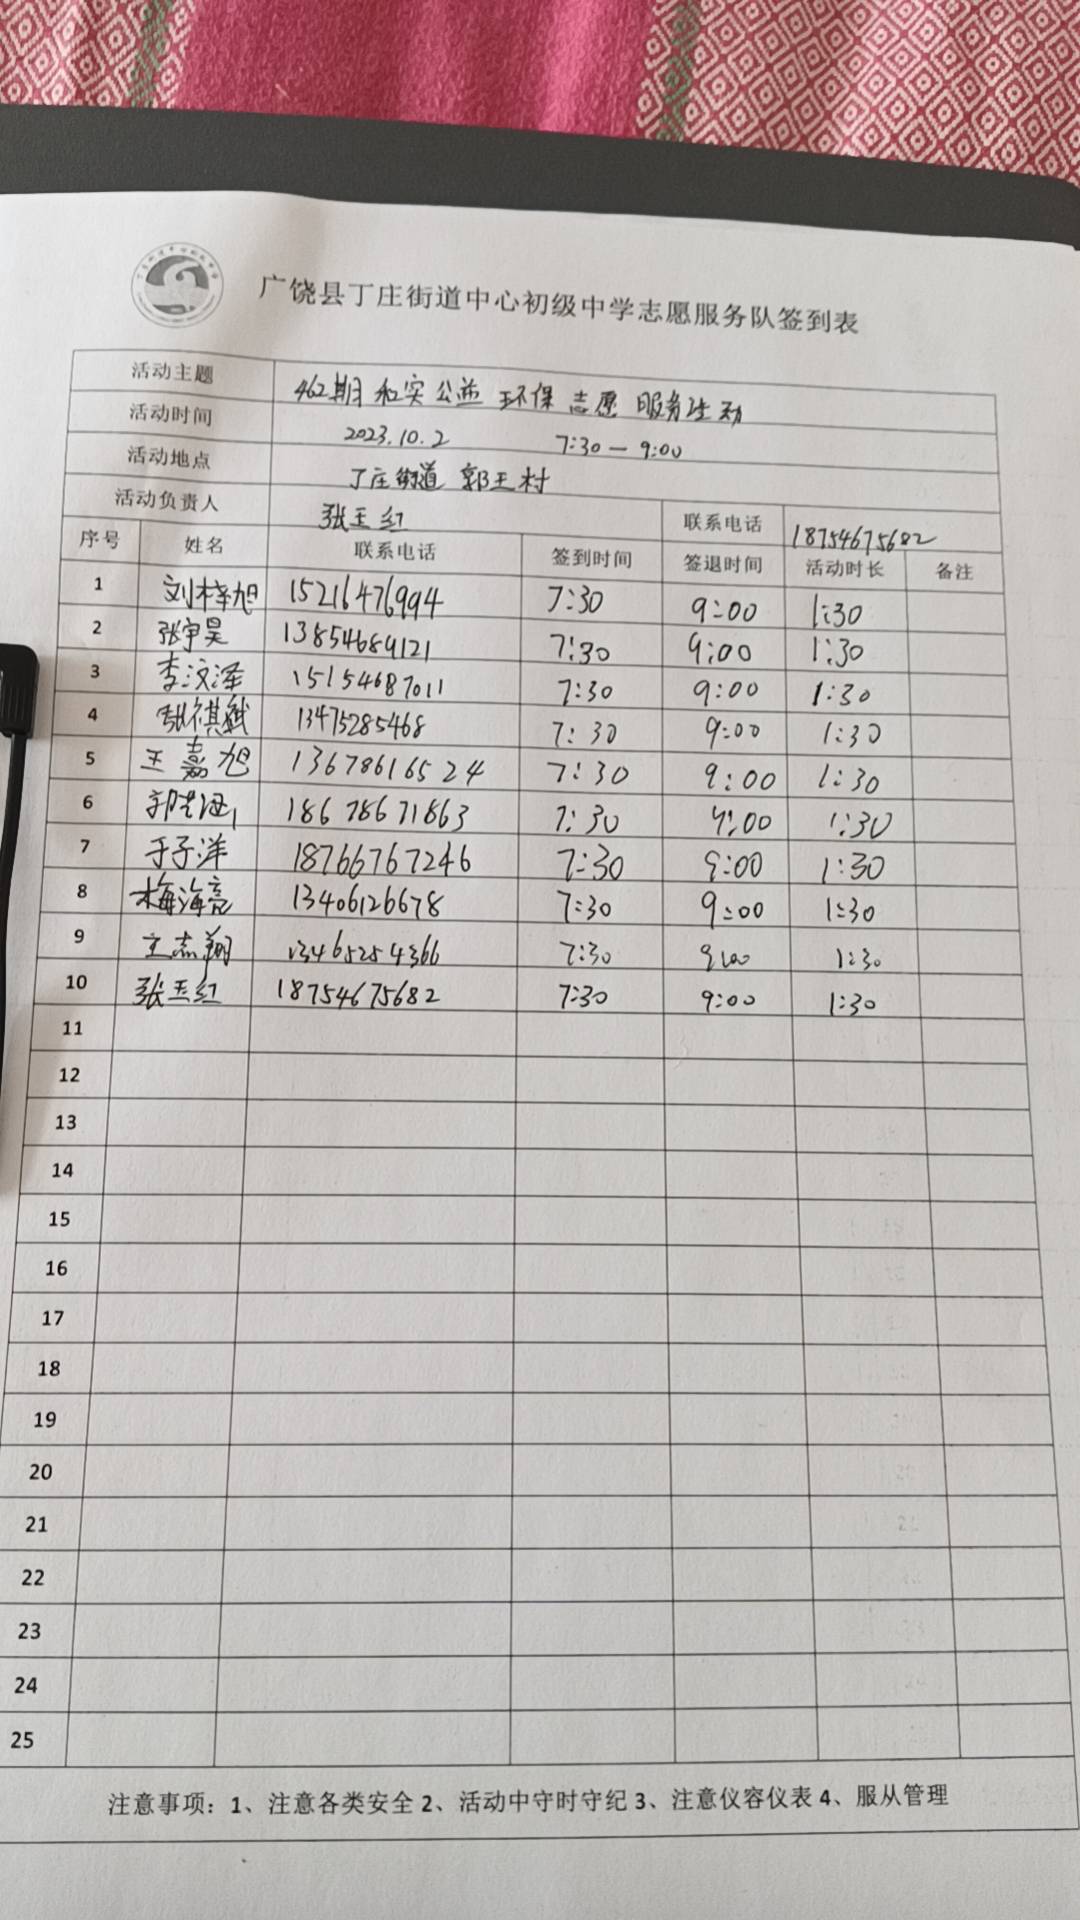 广饶县丁庄街道中心初级中学志愿服务队签到表
活动主题 462期 和实公益 环保 志愿 服务活动
活动时间 2023.10.2 7:30—9:00
活动地点 丁庄街道 郭王村
活动负责人 张玉红 联系电话 18754675682
序号 姓名 联系电话 签到时间 签退时间 活动时长 备注
1 刘梓旭 15216476994 7:30 9:00 1:30
2 张宇昊 13854689121 7:30 9:00 1:30
3 李汶泽 15154687011 7:30 9:00 1:30
4 祺斌 13475285468 7:30 9:00 1:30
5 王嘉旭 13678616524 7:30 9:00 1:30
6 18678671863 7:30 9:00 1:30
7 于子洋 18766767246 7:30 9:00 1:30
8 梅海亮 13406126678 7:30 9:00 1:30
9 志翔 13465254366 7:30 9:00 1:30
10 张玉红 18754675682 7:30 9:00 1:30
11
12
13
14
15
16
17
18
19
20
21
22
23
24
25
注意事项：1、注意各类安全 2、活动中守时守纪 3、注意仪容仪表 4、服从管理